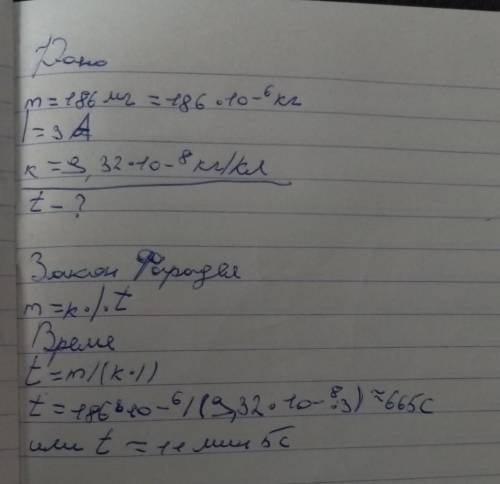 Дано
m = 186 мг = 186 • 10-⁶ кг
I = 3 А
к = 9,32 • 10-⁸ кг/кл
t - ?
Закон Фарадея
m = к • I • t
Время
t = m / (к • I)
t = 186 • 10-⁶ / (9,32 • 10-⁸ • 3) ≈ 665с
или t = 11 мин 5с